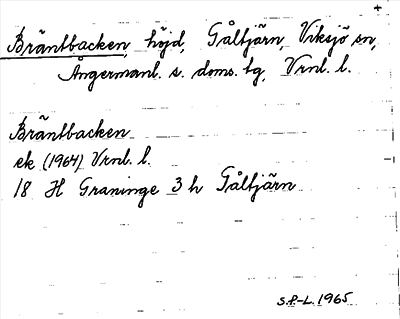 Bräntbacken, höjd, Gåltjärn, Viksjö sn,
Ångermanl. s. doms. tg, Vrnl. l.
Bräntbacken
ek (1964) Vrnl. l.
18 H Graninge 3 h Gåltjärn
S.P-L. 1965